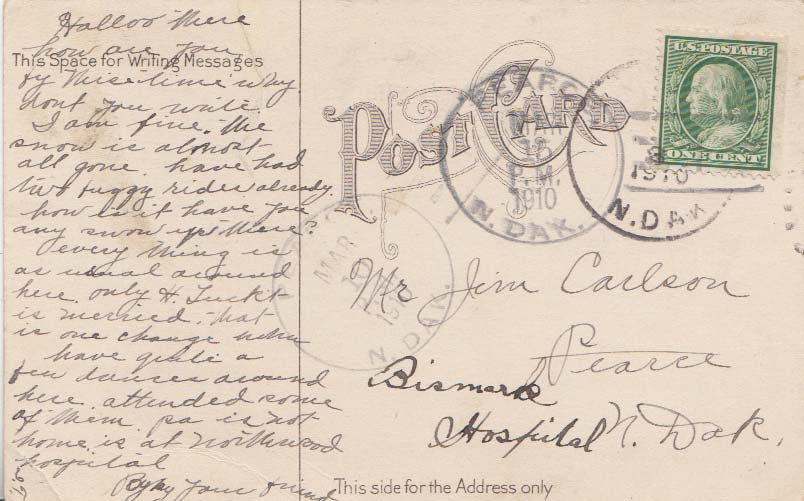 Halloo there
how are you
This Space for Writing Messages
by this time why
dont you write.
I am fine. the
snow is almost
all gone. have had
two buggy rides already.
how is it have you
any snow up there?
every thing is
as usual around
here. only H.
is merried. that
is one change
have quite a
few dances around
here. attended some
of them. pa is not
home. is at northwood
hospital
By by your friend
POST CARD
MAR
12
P.M.
1910
N. DAK.
U.S. POSTAGE
ONE CENT
1910
N. DAK
MAR
N. DAK.
Mr Jim Carlson
Pearce
Bismark
Hospital N. Dak.
This side for the Address only